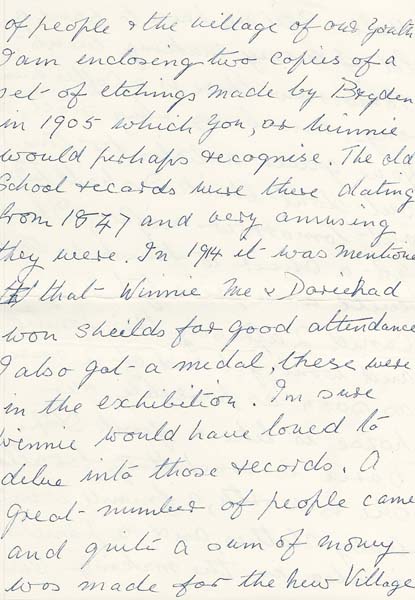 of people & the village of our Youth
I am enclosing two copies of a
set of etchings made by Bryden
in 1905 which you, or Winnie
would perhaps recognise. The old
School records were there dating
from 1847 and very amusing
they were. In 1914 it was mentione
that Winnie me &
won sheilds for good attendance
I also got a medal, these were
in the exhibition. I'm sure
Winnie would have loved to
delve into those records. A
great number of people came
and quite a sum of money
was made for the new Village